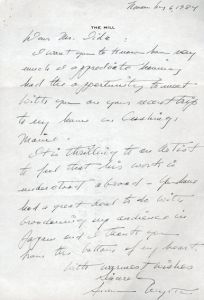 THE MILL
Dear Mr. Sida:
I want you to know how very
much I appreciate having
had the opportunity to meet
with you on your recent trip
to my home in Cushing
Maine.
It is thrilling to an artist
to feel that his work is
understood abroad – you have
had a great deal to do with
broadening my audience in
Japan and I thank you
from the bottom of my heart
with warmest wishes
Sincerely
Andrew Wyeth